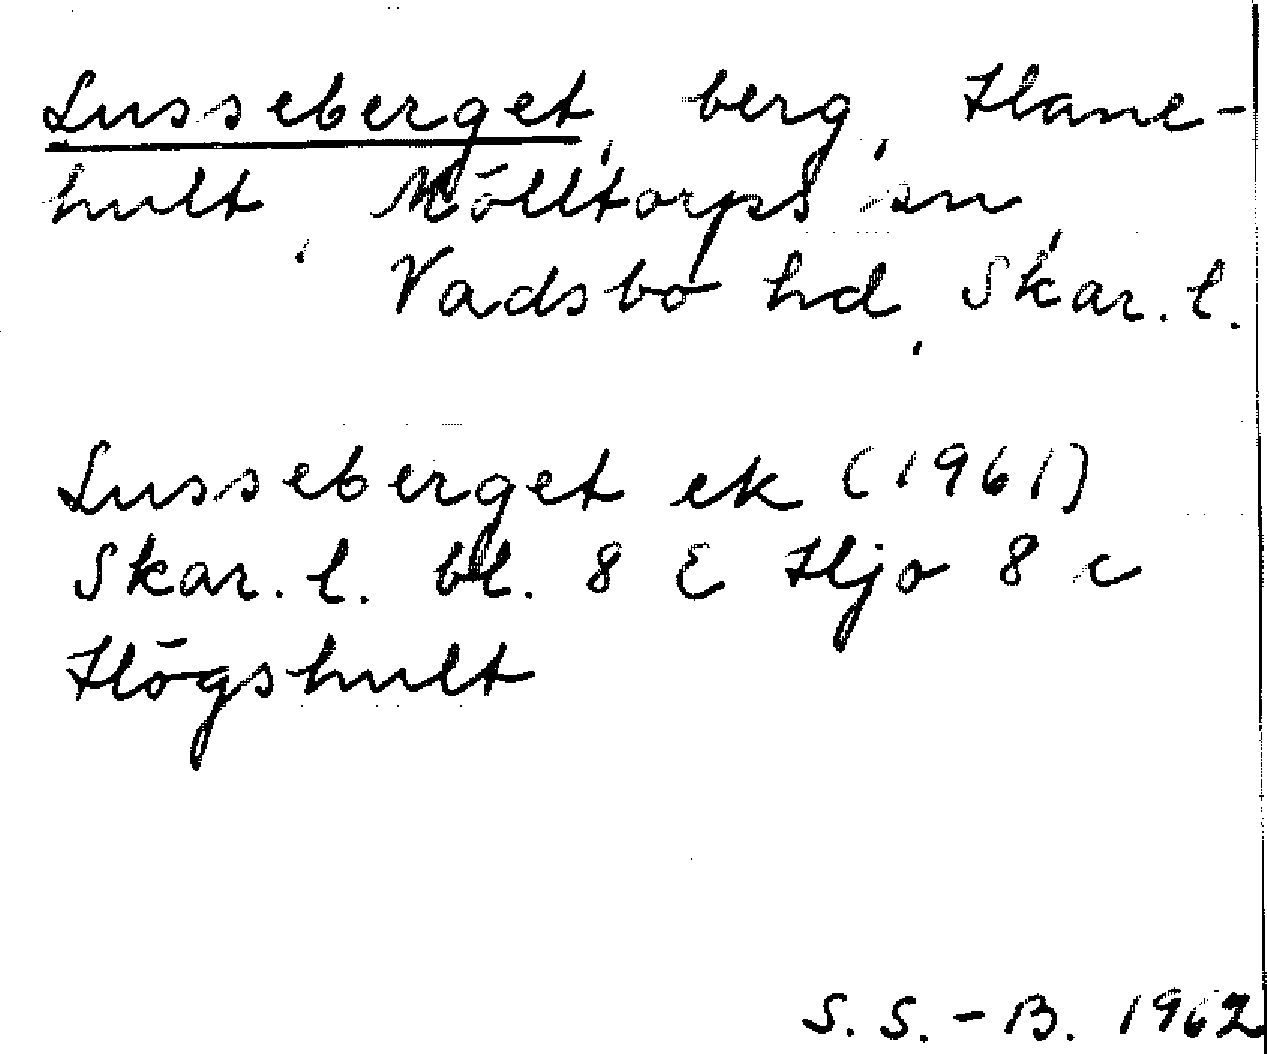 Lusseberget, berg, Hane-
hult, Mölltorps sn,
Vadsbo hd, Skar. l.
Lusseberget ek (1961)
Skar. l. bl. 8 E Hjo 8 c
Högshult
S. S.-B. 1962